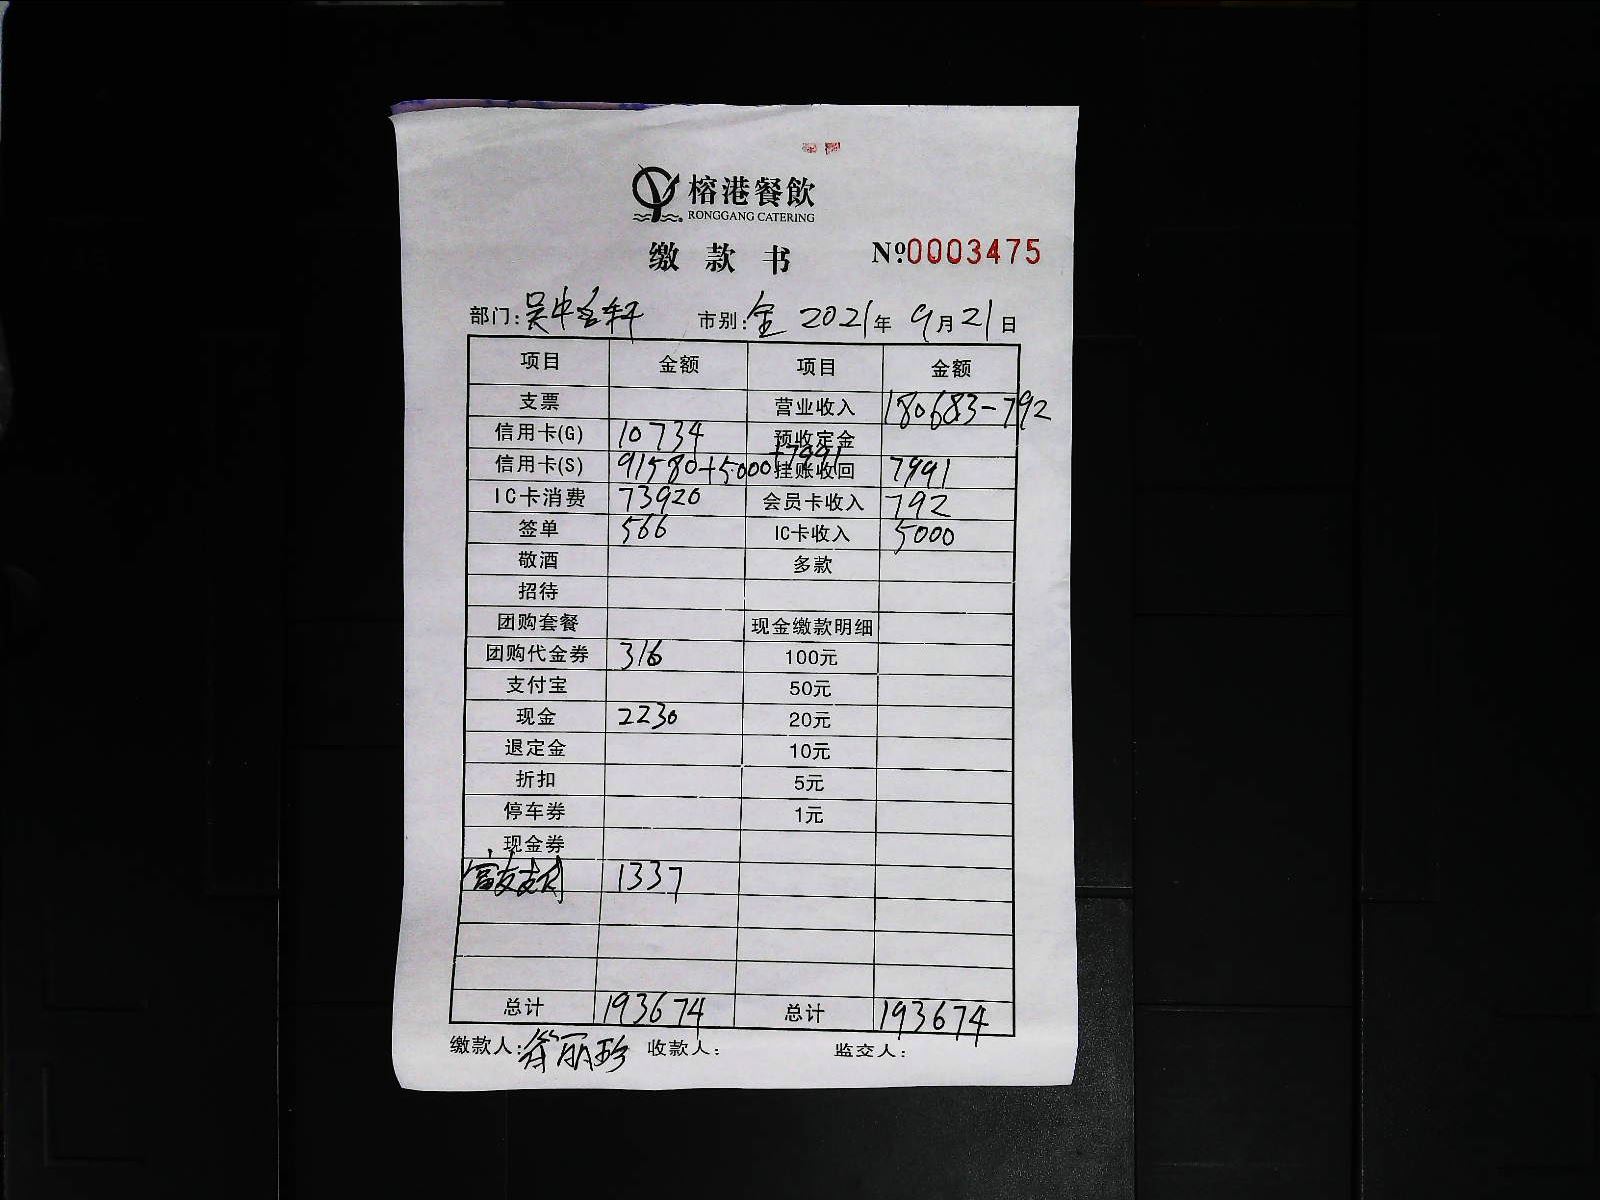 榕港餐飲
RONGGANG CATERING
缴款书 №0003475
部门:吴中名轩 市别:全 2021年 9月21日
项目 金额 项目 金额
支票 营业收入 180683-792
信用卡(G) 10734 预收定金
信用卡(S) 91580+5000+7991 挂账收回 7991
IC卡消费 73920 会员卡收入 792
签单 566 IC卡收入 5000
敬酒 多款
招待
团购套餐 现金缴款明细
团购代金券 316 100元
支付宝 50元
现金 2230 20元
退定金 10元
折扣 5元
停车券 1元
现金券
富友支付 1337
总计 193674 总计 193674
缴款人: 丽珍 收款人: 监交人: